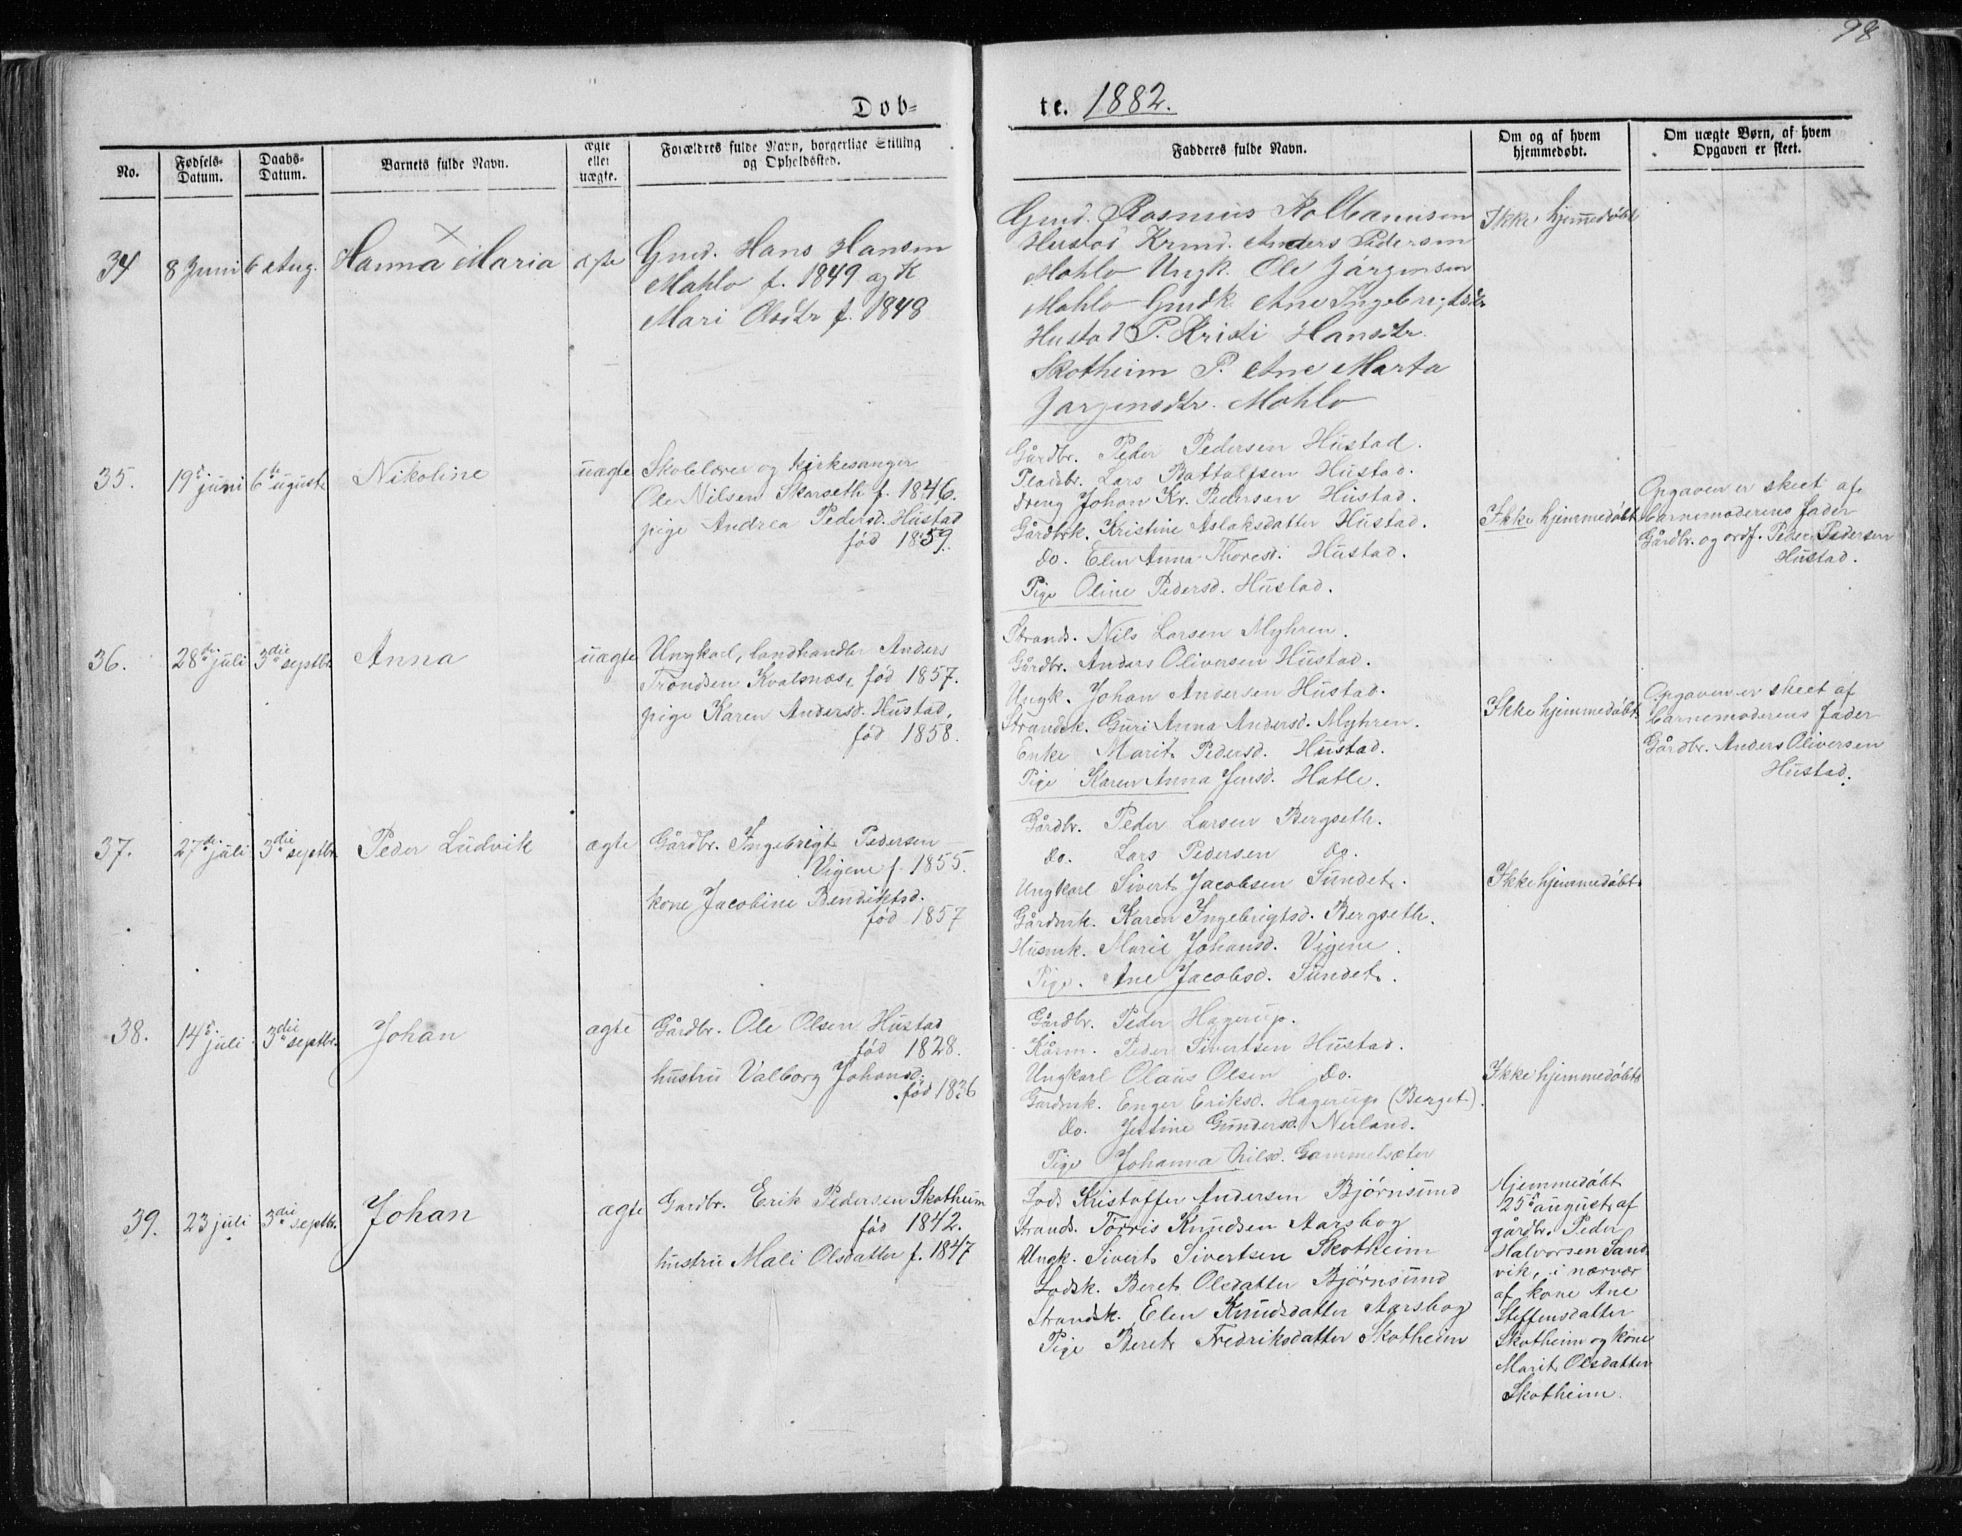 98
Døb-
te. 1882.
No.
Fødsels-
Datum.
Daabs-
Datum.
Barnets fulde Navn.
ægte
eller
uægte.
Forældres fulde Navn, borgerlige Stilling
og Opholdssted.
Fadderes fulde Navn.
Om og af hvem
hjemmedøbt.
Om uægte Børn, af hvem
Opgaven er skeet.
34
8 Juni
6 Aug.
×
Hanna Maria
ægte
Gmd. Hans Hansen
Mahlo f. 1849 og K
Mari Olsdtr f. 1848
Gmd. Rasmus Kolbanussen
Hustad Krmd. Anders Pedersen
Mahlo Ungk. Ole Jørgensen
Mahlo Gmdk. Ane Ingebrigtsdtr
Hustad P. Kristi Hansdtr.
Skotheim P. Ane Marta
Jørgensdtr. Mahlo
Ikke hjemmedøbt
35.
19de juni
6te ugusti
Nikoline
uægte
Skolelærer og kirkesanger
Ole Nilsen Skarseth f. 1846.
pige Andrea Pedersd. Hustad
fød 1859.
Gårdbr. Peder Pedersen Hustad.
Pladsbr. Lars Battalfsen Hustad.
Dreng Johan Kr. Pedersen Hustad.
Gårdbrk. Kristine Aslaksdatter Hustad.
do. Elen Anna Thoresd. Hustad.
Pige Oline Pedersd. Hustad.
Ikke hjemmedøbt
Opgaven er skeet af
barnemoderens fader
Gårdbr. og ordf. Peder Pedersen
Hustad.
36.
28de juli
3die septbr
Anna
uægte
Ungkarl, landhandler Anders
Trondsen Kvalsnæs, fød 1857.
pige Karen Andersd. Hustad,
fød 1858.
Strands. Nils Larsen Myhren.
Gårdbr. Anders Oliversen Hustad.
Ungk. Johan Andersen Hustad.
Strandsk. Guri Anna Andersd. Myhren.
Enke Marit Pedersd. Hustad.
Pige Karen Anna Jensd. Hatle.
Ikke hjemmedøbt
Opgaven er skeet af
barnemoderens fader
Gårdbr. Anders Oliversen
Hustad.
37.
27de juli
3die septbr.
Peder Ludvik
ægte
Gårdbr. Ingebrigt Pedersen
Vigene f. 1855.
kone Jacobine Bendiktsd.
fød 1857
Gårdbr. Peder Larsen Bergseth.
do. Lars Pedersen do.
Ungkarl Sivert Jacobsen Sundet.
Gårdmk. Karen Ingebrigtsd. Bergseth.
Husmk. Marie Johansd. Vigene.
Pige. Ane Jacobsd. Sundet.
Ikke hjemmedøbt
38.
14de juli
3die septbr.
Johan
ægte
Gårdbr. Ole Olsen Hustad
fød 1828.
hustru Valborg Johansd.
fød 1836
Gårdbr. Peder Hagerup.
Kårm. Peder Sivertsen Hustad.
Ungkarl Olaus Olsen do.
Gårdmk. Enger Eriksd. Hagerup (Berget).
do. Jettine Gundersd. Nerland.
Pige Johanna Nilsd. Gammelsæter
Ikke hjemmedøbt
39.
23 juli
3die septbr.
Johan
ægte
Gardbr. Erik Pedersen Skotheim
fød 1842.
hustru Mali Olsdatter f. 1847
Lods Kristoffer Andersen Bjørnsund
Strands. Torris Knudsen Aarsbog
Ungk. Sivert Sivertsen Skotheim
Lodsk. Beret Olsdatter Bjørnsund
Strandsk. Elen Knudsdatter Aarsbog
Pige Beret Fredriksdatter Skotheim
Hjemmedøbt
25de august af
gårdbr. Peder
Halvorsen Sand-
vik, i nærvær
af kone Ane
Steffensdatter
Skotheim og kone
Marit Olsdatter
Skotheim.